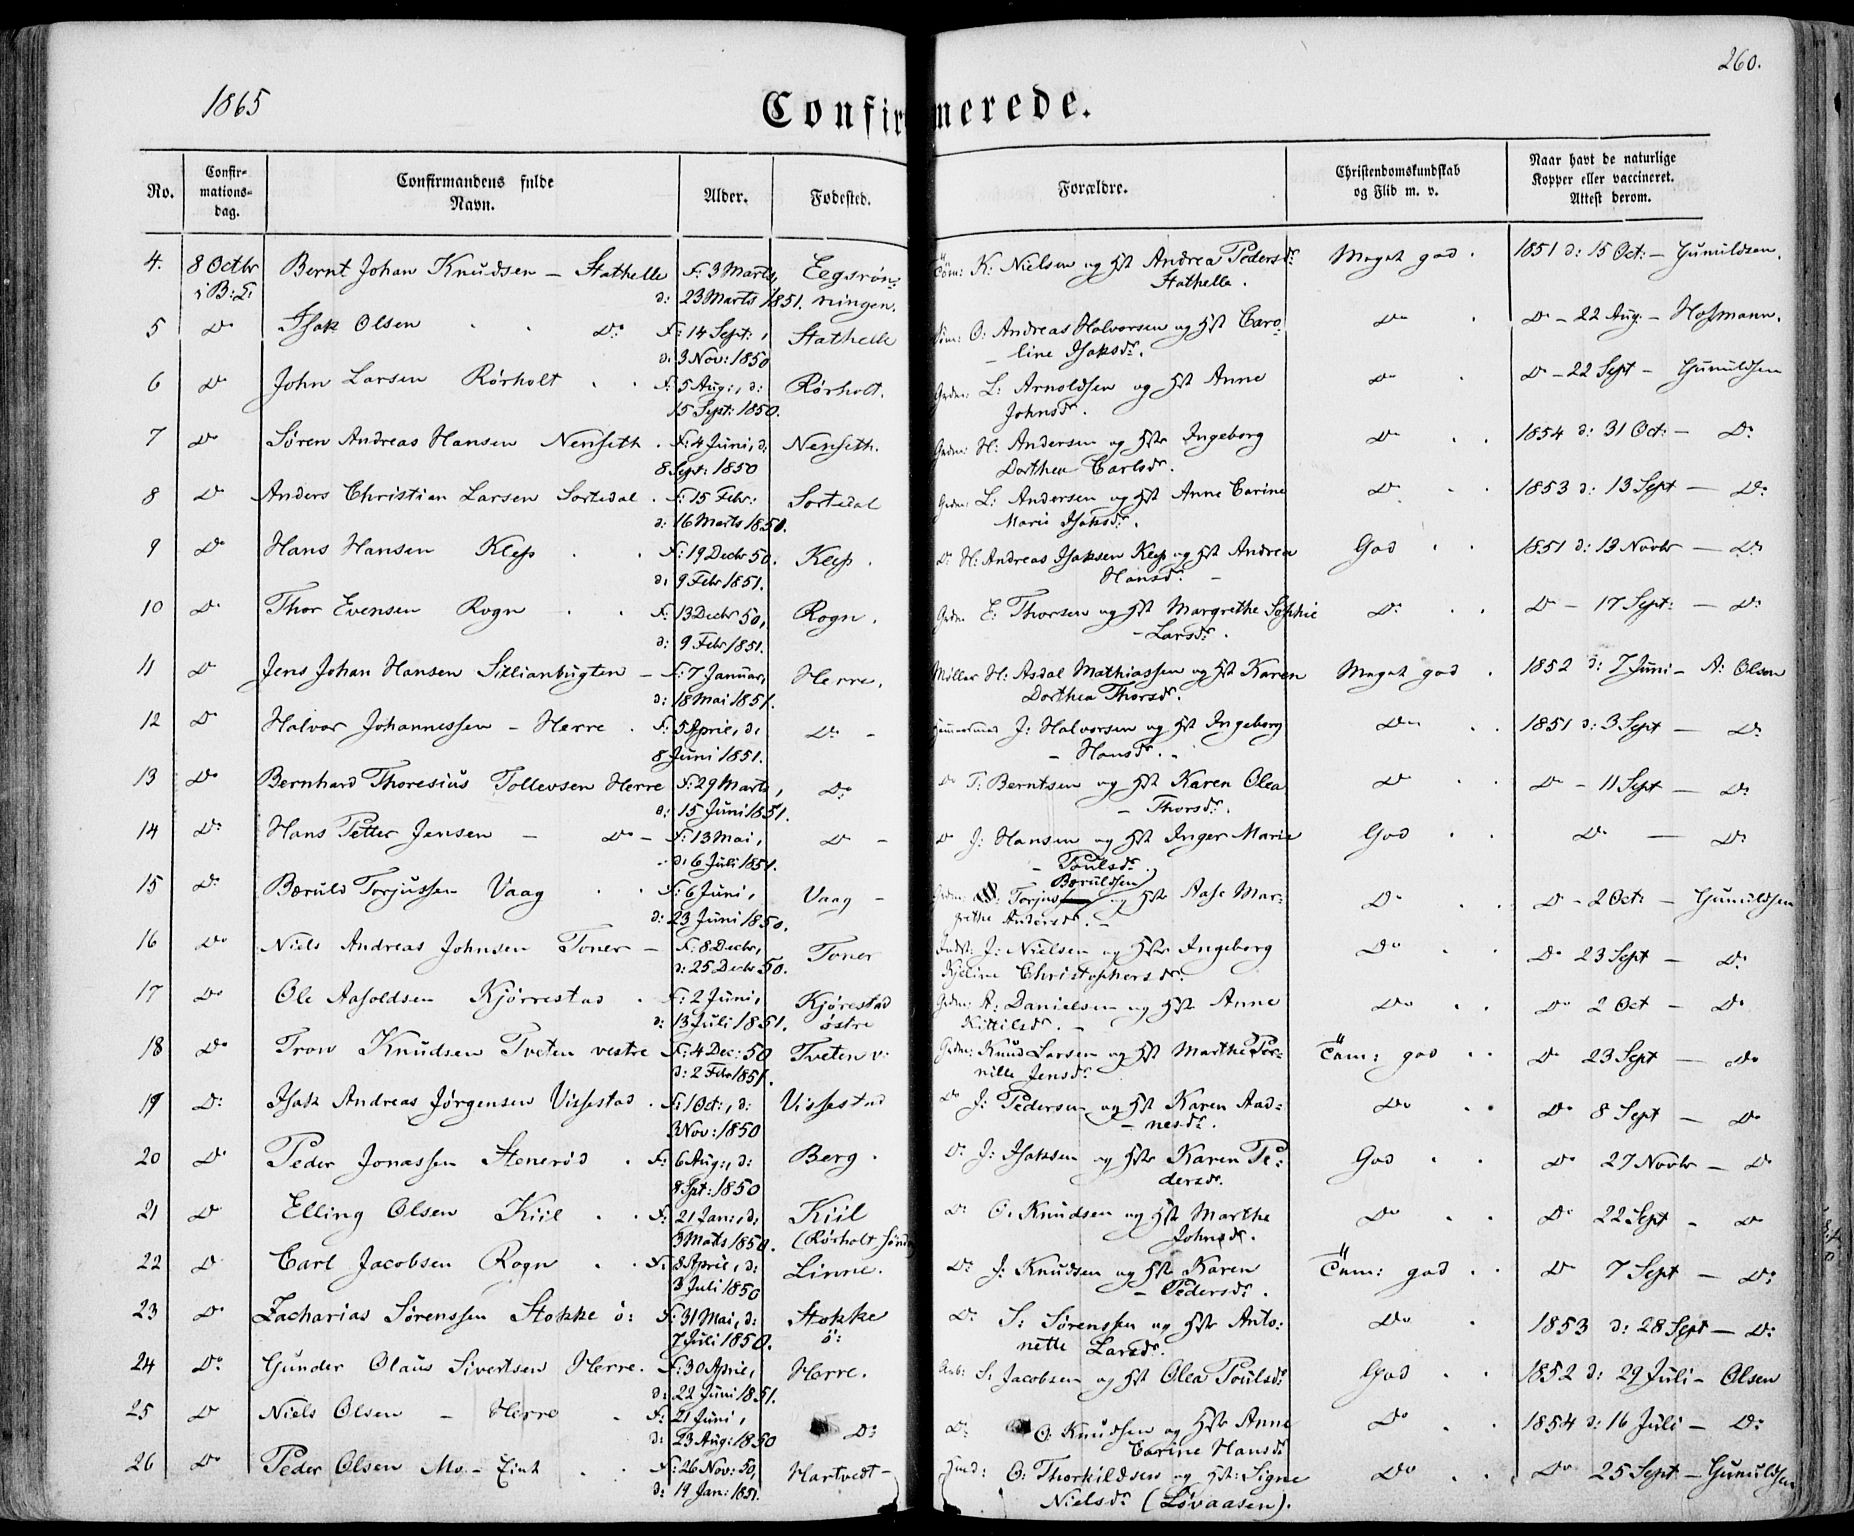 260.
1865
Confirmerede.
No. Confirmationsdag. Confirmandens fulde Navn. Alder. Fødested. Forældre. Christendomskundskab og Flid m. v. Naar havt de naturlige Kopper eller vaccineret. Attest derom.
4. 8 Octbr Bernt Johan Knudsen – Stathelle f: 3 Marts, Eegsrøn- K: Nielsen og Hst Andrea Pedersdr Meget god. 1851 d: 15 Oct: – Gunuldsen.
i B: d: 23 Marts 1851. ningen. Stathelle.
5 Do Isak Olsen Do: f: 14 Sept:, Stathelle O: Andreas Halvorsen og Hst Caro- Do Do – 22 Aug: – Hofmann.
d: 3 Nov: 1850 line Isaksdr.
6 Do John Larsen Rörholt f: 5 Aug:, d: Rörholt. Grdm: L: Arnoldsen og Hst Anne Do Do – 22 Sept – Gunuldsen
15 Sept: 1850. Johnsdr.
7 Do Søren Andreas Hansen Nenseth. f: 4 Juni, d: Nenseth. Grdm: H: Andersen og Hstr Ingeborg Do 1854 d: 31 Oct: – Do:
8 Sept: 1850 Dorthea Carlsdr.
8 Do Anders Christian Larsen Sortedal. f: 15 Febr: Sortedal Grdm: L: Andersen og Hst Anne Carine Do 1853 d: 13 Sept – Do:
d: 16 Marts 1850. Marie Isaksdr.
9 Do Hans Hansen Klep f: 19 Decbr 50. Klep. Do H: Andreas Isaksen Klep og Hst Andrea God 1851 d: 13 Novbr – Do:
d: 9 Febr 1851. Hansdr.
10 Do Thor Evensen Rogn f: 13 Decbr 50, Rogn. Grdm. E: Thorsen og Hst Margrethe Sophie Do: Do – 17 Sept: – Do:
d: 9 Febr 1851. Larsdr.
11 Do Jens Johan Hansen Siklianbugten – f: 7 Januar, Herre. Møller H: Asdal Mathiassen og Hst Karen Meget god. 1852 d: 7 Juni – A: Olsen
d: 18 Mai 1851. Dorthea Thorsdr.
12 Do Halvor Johannessen – Herre. f: 5 April, d: Do – J: Halvorsen og Hst Ingeborg Do 1851 d: 3 Sept – Do:
8 Juni 1851. Hansdr.
13 Do Bernhard Thoresius Tollevsen Herre f: 29 Marts, Do: Do T: Berntsen og Hst Karen Olea Do Do – 11 Sept – Do:
d: 15 Juni 1851. Thorsdr.
14 Do: Hans Petter Jensen – Do – f: 13 Mai, Do – Do J: Hansen og Hst Inger Marie God Do – Do:
d: 6 Juli 1851. Poulsdr.
Bæruldsen
15 Do: Bæruld Torjussen Vaag f: 6 Juni, Vaag – Grdm: Torjus og Hstr Aase Mar- Do Do – 2 Oct: – Gunuldsen
d: 23 Juni 1850. grethe Andersdr.
16 Do Niels Andreas Johnsen Toner – f: 8 Decbr, Toner Indst: J: Nielsen og Hstr Ingeborg Do Do 23 Sept – Do:
d: 25 Decbr 50. Kjeline Christophersdr.
17 Do Ole Aasoldsen Kjörrestad f: 2 Juni, Kjörestad Grdm: A: Danielsen og Hst Anne Do Do 2 Oct – Do
d: 13 Juli 1851. østre Kittilsdr.
18 Do Trow Knudsen Tveten vestre f: 4 Dec: 50 Tveten v: Grdm: Knud Larsen og Hst Marthe Per- Tem: god Do 23 Sept – Do
d: 2 Febr 1851. nille Jensdr.
19 Do: Isak Andreas Jørgensen Vissestad. f: 1 Oct:, d: Vissestad Do J: Pedersen og Hst Karen Aad- Do Do 8 Sept – Do
3 Nov: 1850 nesdr.
20 Do Peder Jonassen Stenerød f: 6 Aug:, d: Berg. Do J: Isaksen og Hstr Karen Pe- God Do 27 Novbr – Do
8 Spt: 1850 dersdr.
21 Do Elling Olsen Kiil f: 21 Jan:, d: Kiil Do O: Knudsen og Hst Marthe Do Do 22 Sept – Do
3 Marts 1850. (Rörholt søndre Johnsdr.
22 Do Carl Jacobsen Rogn f: 8 April, d: Linne. Do: J: Knudsen og Hstr Karen Tem: god Do 7 Sept – Do:
3 Juli 1850 Pedersdr.
23 Do Zacharias Sørenssen Stokke ö: f: 31 Mai, d: Stokke Do: S: Sørenssen og Hstr Anto- Do 1853 d: 28 Sept – Do:
7 Juli 1850. ö: nette Larsdr.
24 Do: Gunder Olaus Sivertsen Herre. f: 30 April, Herre. Arb: S: Jacobsen og Hst Olea Poulsdr God 1852 d: 29 Juli – Olsen
d: 22 Juni 1851.
25 Do Niels Olsen – Herre f: 21 Juni, Do: Do: O: Knudsen og Hstr Anne Do 1854 d: 16 Juli – Do:
d: 23 Aug: 1850 Carine Hansdr
26 Do Peder Olsen Mo – f: 26 Nov: 50, Hartvedt – Hmd: O: Thorkildsen og Hst: Signe Do Do 25 Sept – Gunuldsen
d: 19 Jan: 1851. Nielsdr (Løvaasen).